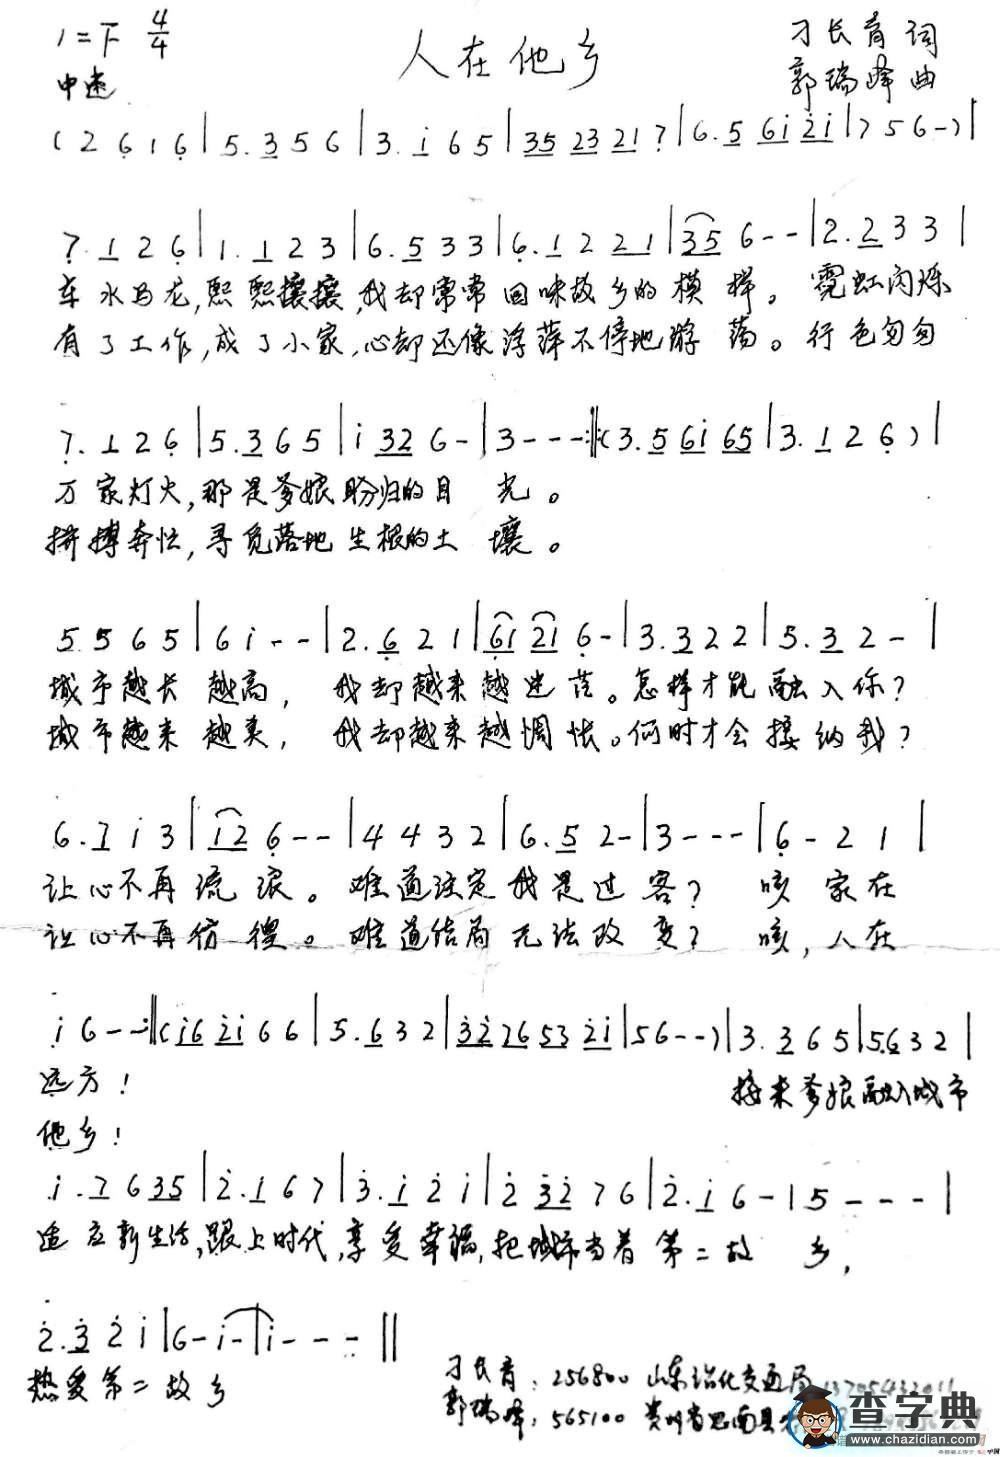 1=F 4/4
人在他乡
刁长育 词
中速
郭瑞峰 曲
( 2 6̣ 1 6̣ | 5. 3 5 6 | 3. i 6 5 | 35 23 21 7̣ | 6. 5 6i 2̇i | 7 5 6 - ) |
7̣. 1 2 6̣ | 1. 1 2 3 | 6. 5 3 3 | 6̣. 1 2 21 | 35 6 - - | 2. 2 3 3 |
车水马龙,熙熙攘攘,我却常常回味故乡的模样。霓虹闪烁
有了工作,成了小家,心却还像浮萍不停地游荡。行色匆匆
7̣. 1 2 6̣ | 5. 3 6 5 | i 32 6 - | 3 - - - :‖: ( 3. 5 6i 65 | 3. 1 2 6̣ ) |
万家灯火,那是爹娘盼归的目光。
拼搏奔忙,寻觅落地生根的土壤。
5 5 6 5 | 6 i - - | 2. 6̣ 2 1 | 6̣1 21 6̣ - | 3. 3 2 2 | 5. 3 2 - |
城市越长越高,我却越来越迷茫。怎样才能融入你?
城市越来越美,我却越来越惆怅。何时才会接纳我?
6. 7 i 3 | 12 6̣ - - | 4 4 3 2 | 6. 5 2 - | 3 - - - | 6̣ - 2 1 |
让心不再流浪。难道注定我是过客?咳 家在
让心不再彷徨。难道结局无法改变?咳,人在
i 6 - - :‖ ( i6 2̇i 6 6 | 5. 6 3 2 | 3̇2̇ 76 53 2̇i | 5 6 - - ) | 3. 3 6 5 | 5. 6 3 2 |
远方!
接来爹娘融入城市
他乡!
i. 7 6 35 | 2̇. i 6 7 | 3̇. i 2̇ i | 2̇ 3̇2̇ 7 6 | 2̇. i 6 - | 5 - - - |
适应新生活,跟上时代,享受幸福,把城市当着第二故乡,
2̇. 3̇ 2̇ i | 6 - i - | i - - - ‖
热爱第二故乡
刁长育:256800 山东沾化交通局13705432011
郭瑞峰:565100 贵州省思南县
查字典
www.chazidian.com